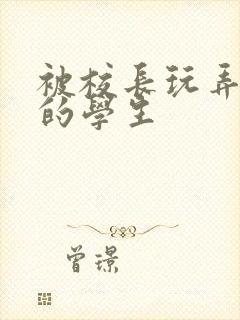 被校長玩弄
的學生
曾璟